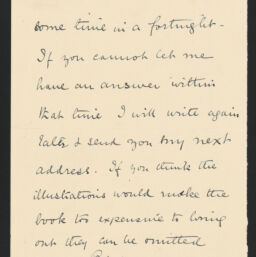 some time in a fortnight -
If you cannot let me
have an answer within
that time I will write again
& send you my next
address. If you think the
illustrations would make the
book too expensive to bring
out they can be omitted